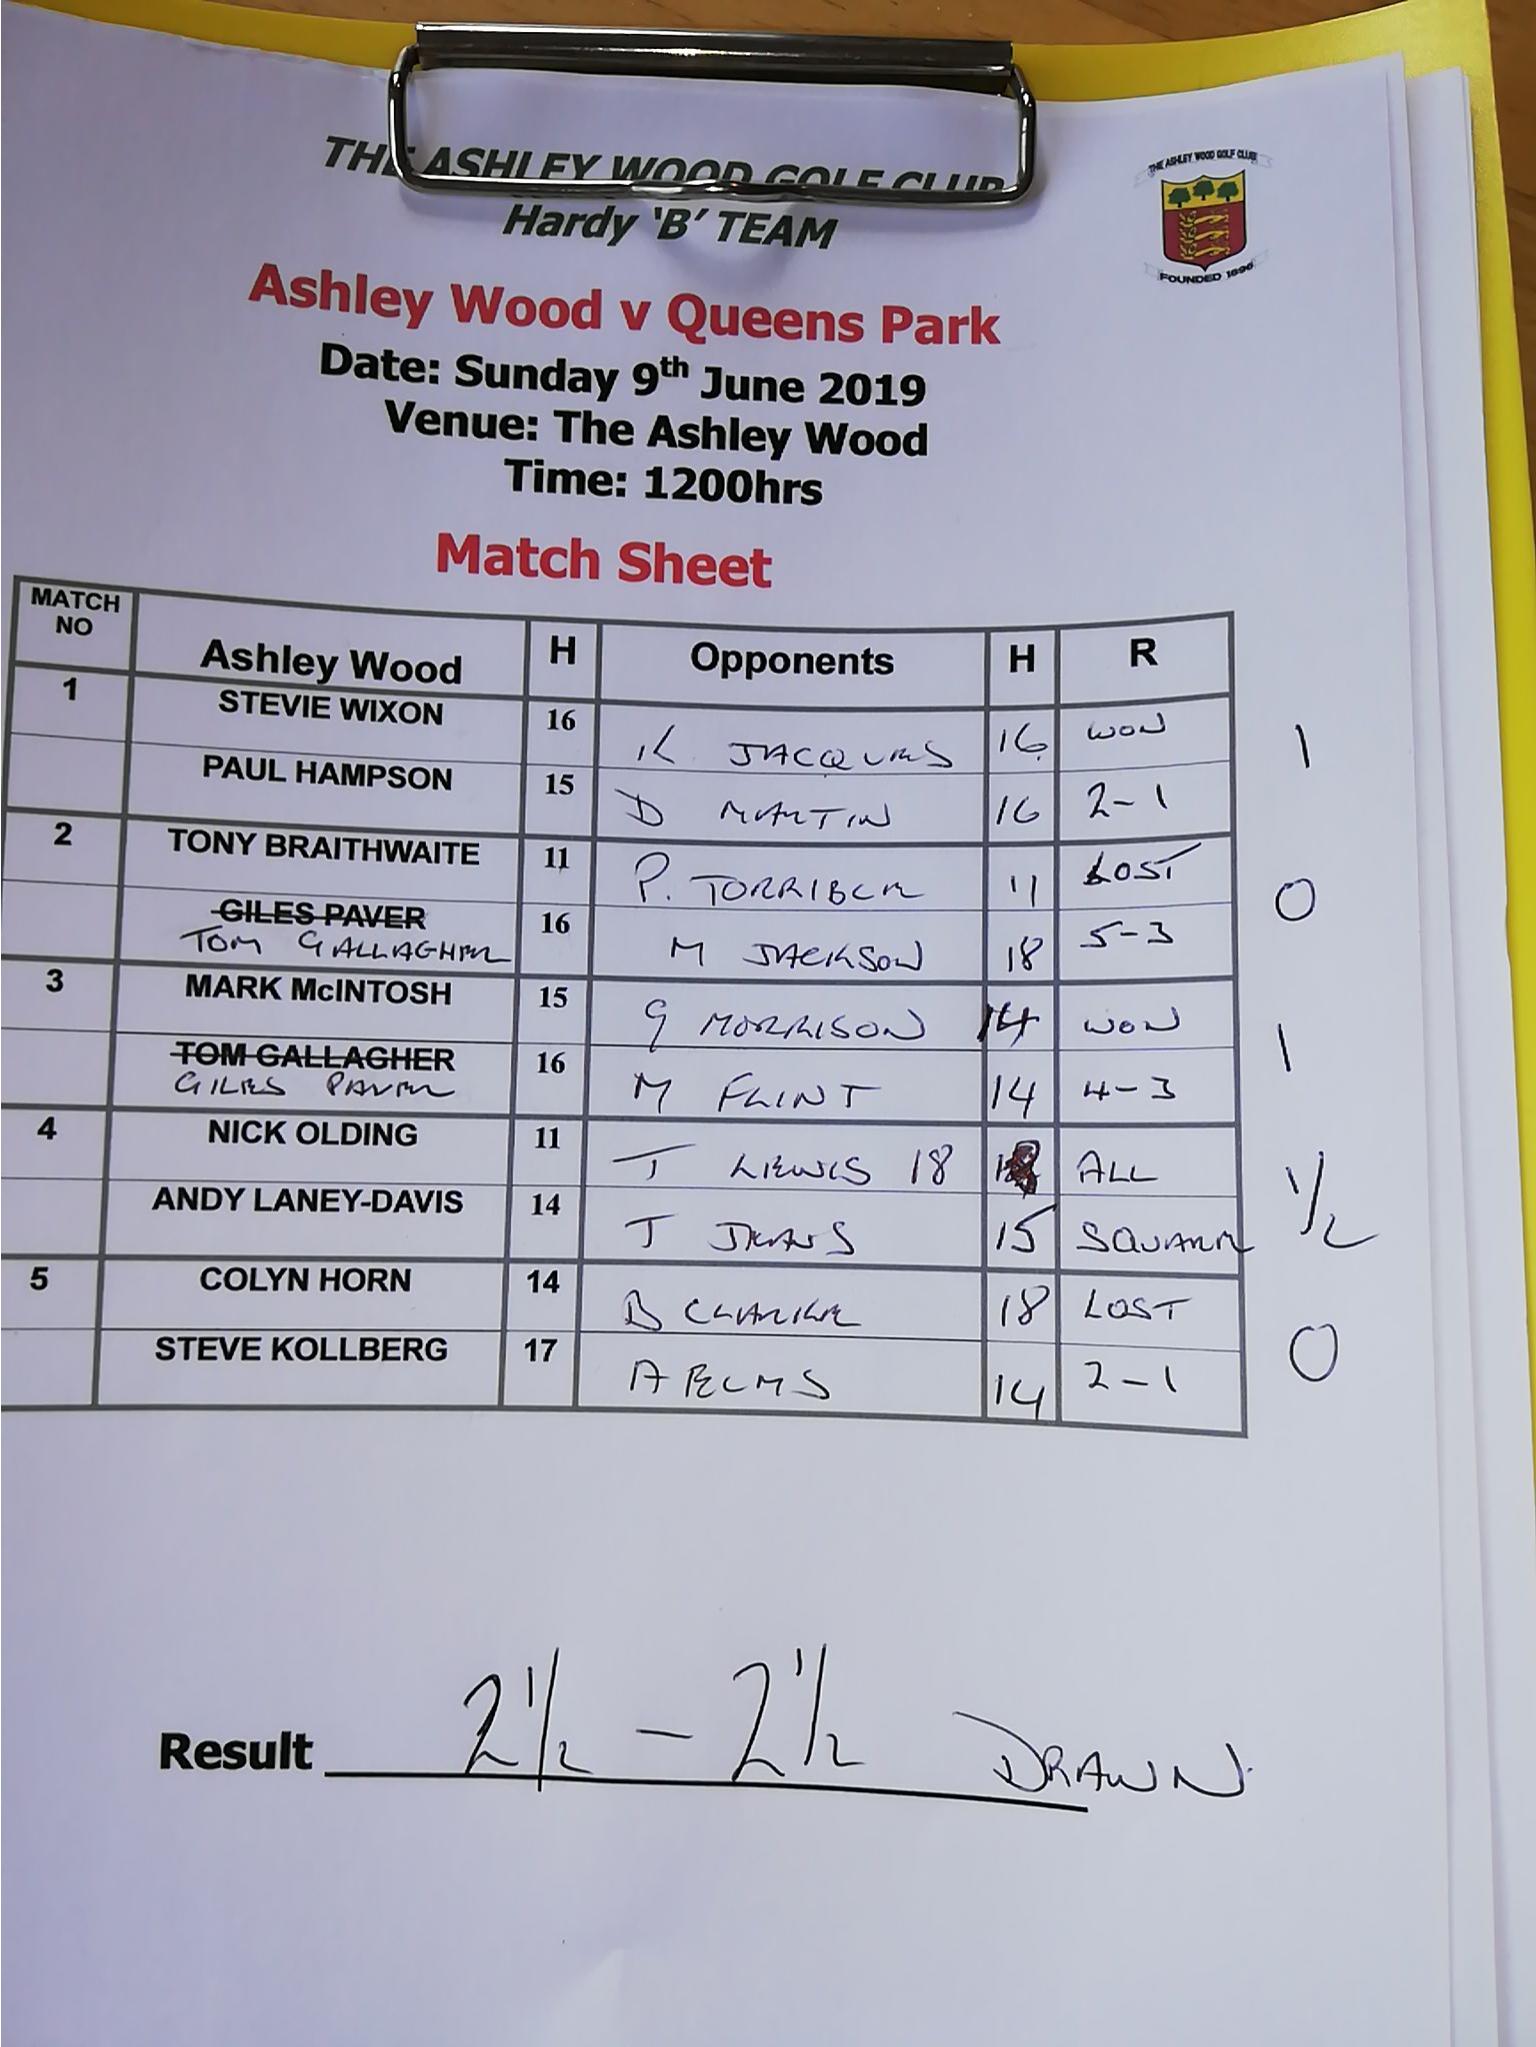 THE ASHLEY WOOD GOLF CLUB
Hardy ‘B’ TEAM
THE ASHLEY WOOD GOLF CLUB
FOUNDED 1896
Ashley Wood v Queens Park
Date: Sunday 9th June 2019
Venue: The Ashley Wood
Time: 1200hrs
Match Sheet
MATCH NO Ashley Wood H Opponents H R
1 STEVIE WIXON 16 K JACQUES 16 WON 1
PAUL HAMPSON 15 D MARTIN 16 2-1
2 TONY BRAITHWAITE 11 P. 11 LOST 0
GILES PAVER 16 M JACKSON 18 5-3
TOM GALLAGHER
3 MARK McINTOSH 15 G MORRISON 14 WON 1
TOM GALLAGHER 16 M FLINT 14 4-3
GILES PAVER
4 NICK OLDING 11 T LEWIS 18 ALL 1/2
ANDY LANEY-DAVIS 14 T JEANS 15 SQUARE
5 COLYN HORN 14 B CLARKE 18 LOST 0
STEVE KOLLBERG 17 A ELMS 14 2-1
Result 2 1/2 - 2 1/2 DRAWN